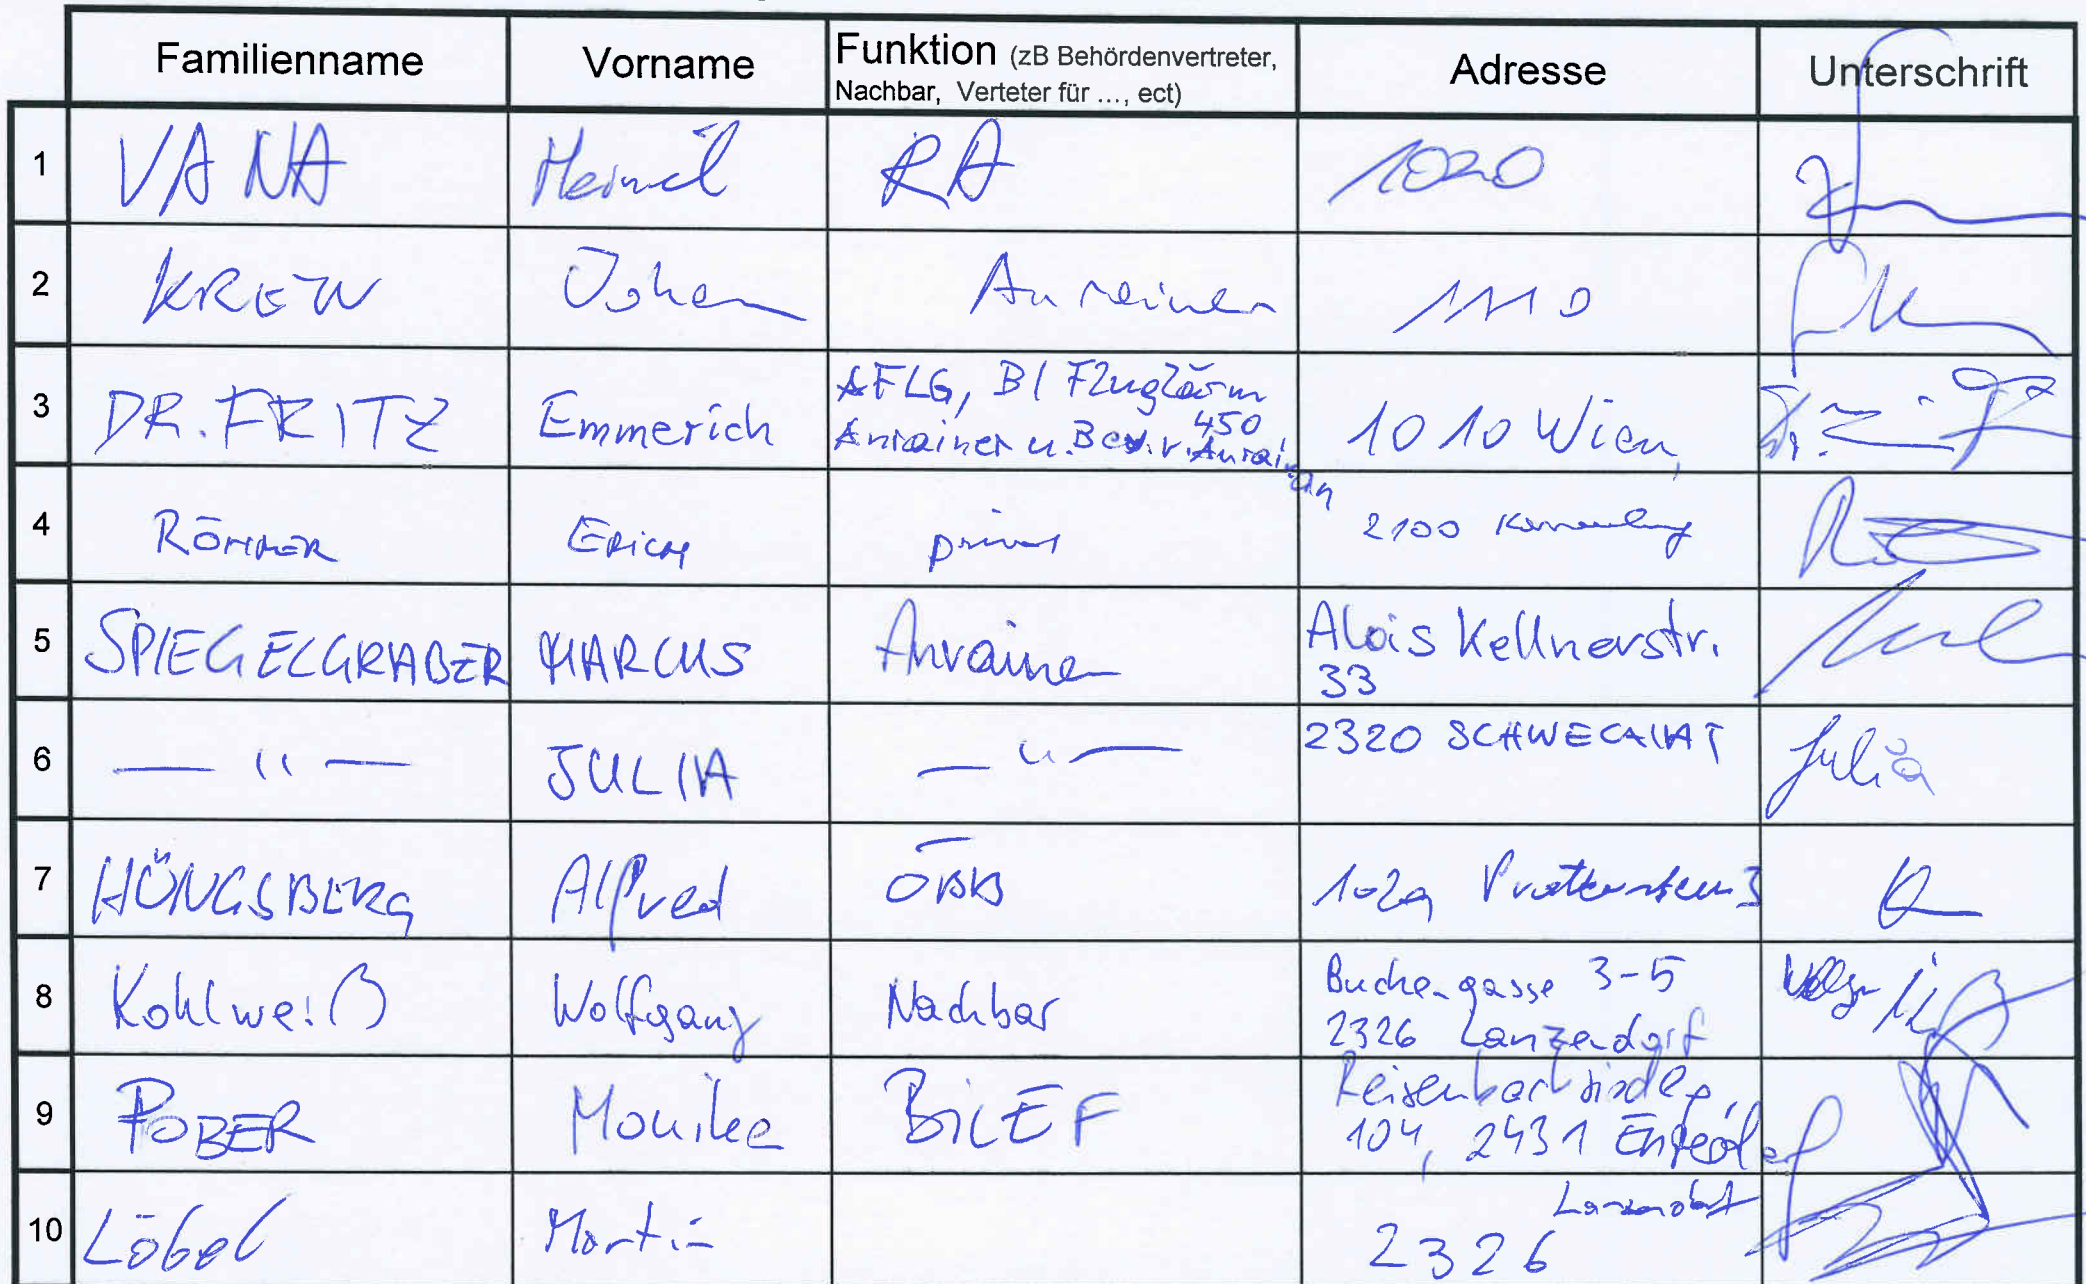 Familienname Vorname Funktion (zB Behördenvertreter, Nachbar, Verteter für ..., ect) Adresse Unterschrift
1 VANA Heinrich RA 1020
2 KREN Johann Anrainer 1110
3 DR. FRITZ Emmerich AFLG, BI Fluglärm
Anrainer u. Bev. v. 450 Anrainern 1010 Wien,
4 RÖMMER ERICH privat 2100
5 SPIEGELGRABER MARCUS Anrainer Alois Kellnerstr.
33
6 — " — JULIA — " — 2320 SCHWECHAT Julia
7 HÜNGSBERG Alfred ÖBB 1020 Praterstern 3
8 Kohlweiß Wolfgang Nachbar Buchengasse 3-5
2326 Lanzendorf
9 POBER Monika BILEF
104, 2431 Enzersdorf
10 Löbel Martin 2326 Lanzendorf